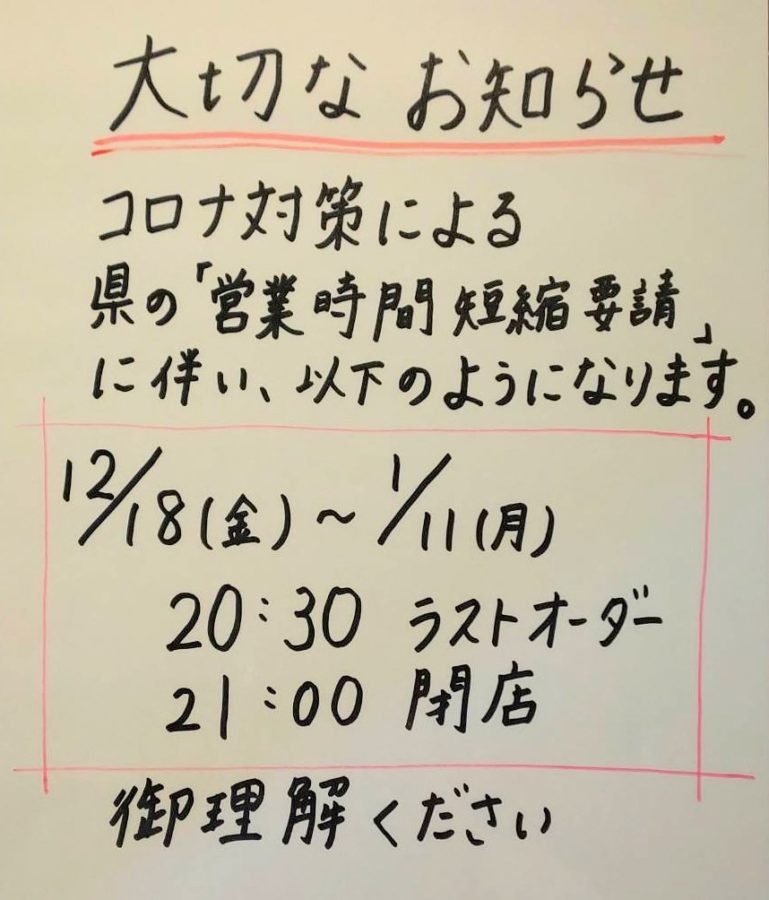 大切な お知らせ
コロナ対策による
県の「営業時間短縮要請」
に伴い、以下のようになります。
12/18(金)～1/11(月)
20:30 ラストオーダー
21:00 閉店
御理解ください